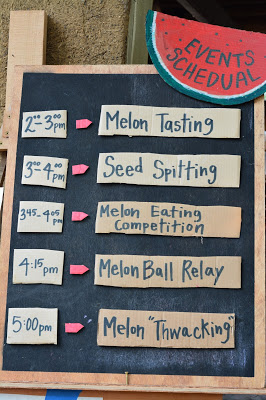 EVENTS
SCHEDUAL
2:00-3:00pm Melon Tasting
3:00-4:00pm Seed Spitting
3:45-4:05pm Melon Eating
Competition
4:15pm Melon Ball Relay
5:00pm Melon "Thwacking"